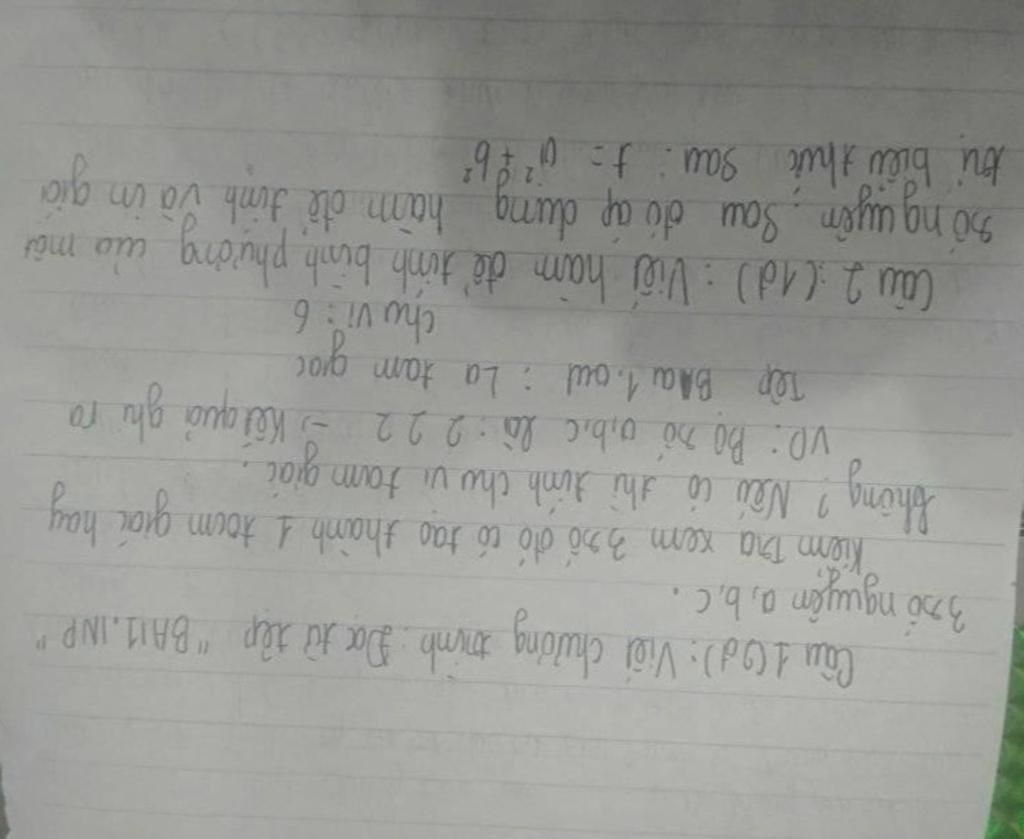 Câu 1(2đ): Viết chương trình: Đọc từ tệp "BAI1.INP"
3 số nguyên a, b, c.
Kiểm tra xem 3 số đó có tạo thành 1 tam giác hay
không? Nếu có thì tính chu vi tam giác.
VD: Bộ số a,b,c là: 2 2 2 → Kết quả ghi ra
Tệp BAI1.out : La tam giac
chu vi : 6
Câu 2:(1đ): Viết hàm để tính bình phương của một
số nguyên. Sau đó áp dụng hàm để tính và in giá
trị biểu thức sau: t = a² + b²